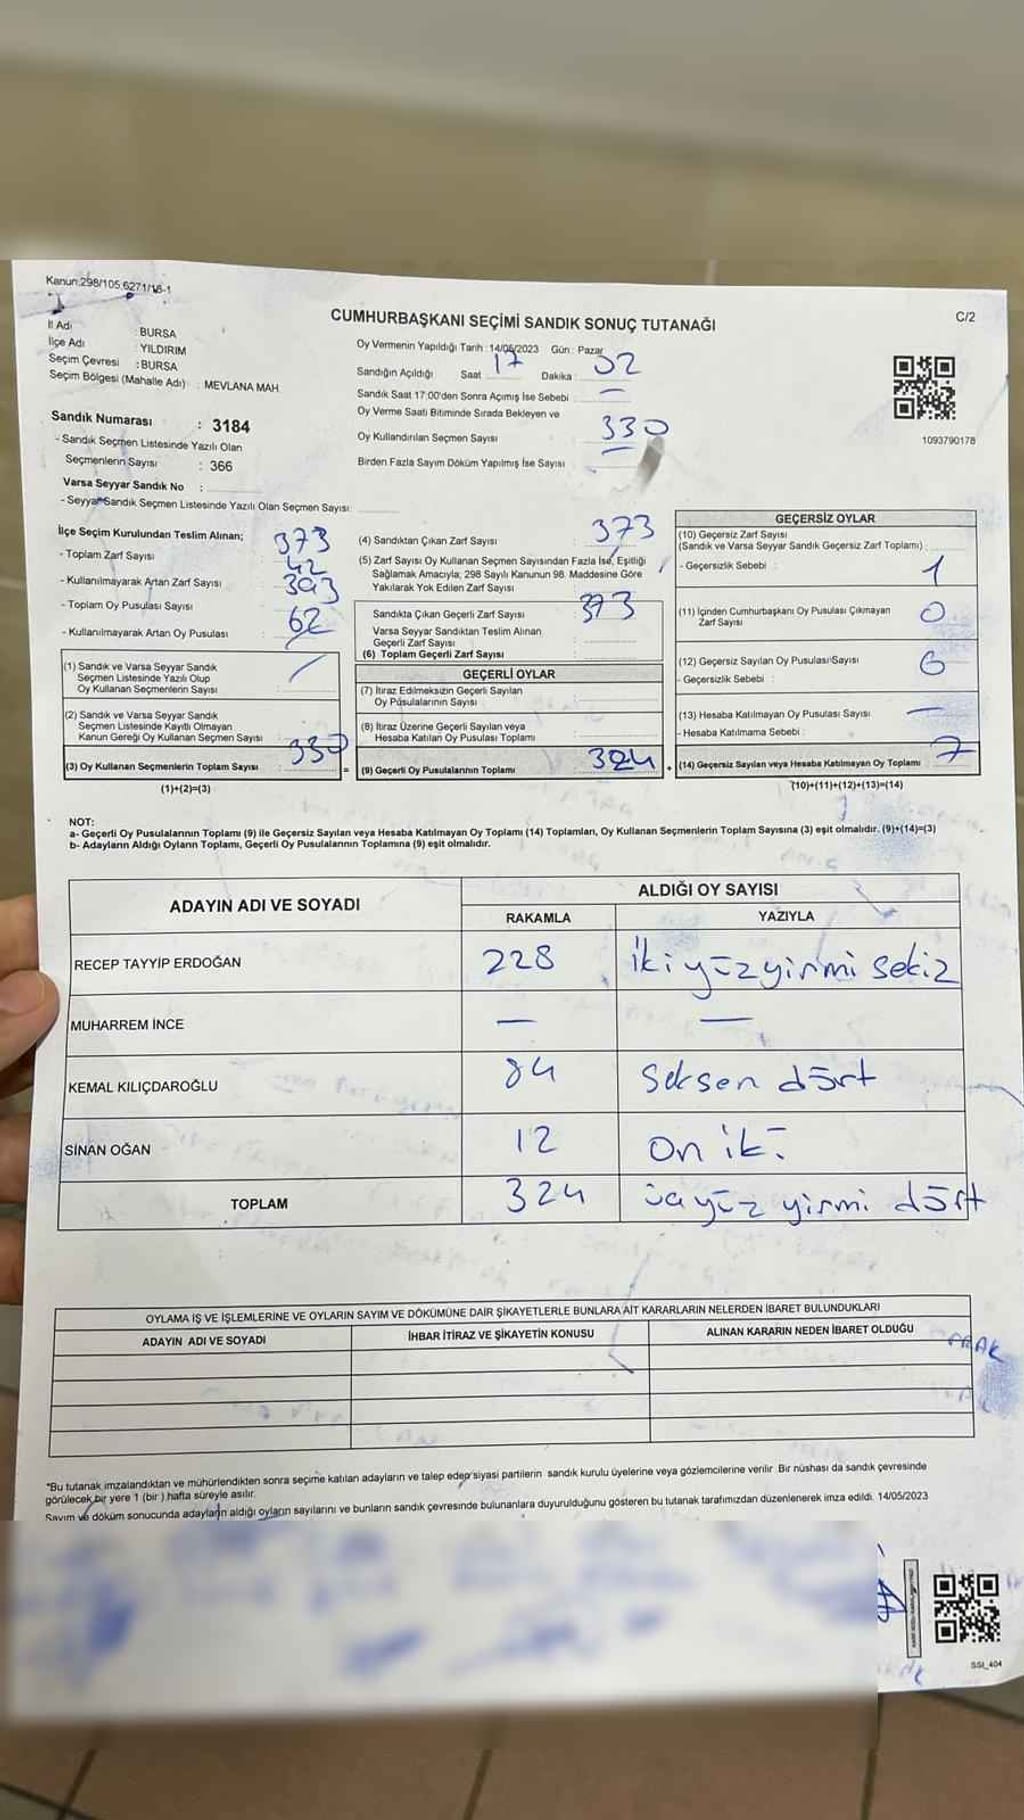 Kanun:298/105,6271/16-1
C/2
CUMHURBAŞKANI SEÇİMİ SANDIK SONUÇ TUTANAĞI
İl Adı : BURSA
İlçe Adı : YILDIRIM
Seçim Çevresi : BURSA
Seçim Bölgesi (Mahalle Adı) : MEVLANA MAH.
Oy Vermenin Yapıldığı Tarih :14/05/2023 Gün : Pazar
Sandığın Açıldığı Saat 17 Dakika : 02
Sandık Saat 17:00'den Sonra Açımış İse Sebebi : —
Oy Verme Saati Bitiminde Sırada Bekleyen ve
Oy Kullandırılan Seçmen Sayısı : 330
Birden Fazla Sayım Döküm Yapılmış İse Sayısı
1093790178
Sandık Numarası : 3184
- Sandık Seçmen Listesinde Yazılı Olan
Seçmenlerin Sayısı : 366
Varsa Seyyar Sandık No :
- Seyyar Sandık Seçmen Listesinde Yazılı Olan Seçmen Sayısı:
İlçe Seçim Kurulundan Teslim Alınan;
- Toplam Zarf Sayısı 373
- Kullanılmayarak Artan Zarf Sayısı 42
- Toplam Oy Pusulası Sayısı 393
- Kullanılmayarak Artan Oy Pusulası 62
(1) Sandık ve Varsa Seyyar Sandık
Seçmen Listesinde Yazılı Olup
Oy Kullanan Seçmenlerin Sayısı
(2) Sandık ve Varsa Seyyar Sandık
Seçmen Listesinde Kayıtlı Olmayan
Kanun Gereği Oy Kullanan Seçmen Sayısı
(3) Oy Kullanan Seçmenlerin Toplam Sayısı 330
(1)+(2)=(3)
(4) Sandıktan Çıkan Zarf Sayısı 373
(5) Zarf Sayısı Oy Kullanan Seçmen Sayısından Fazla İse, Eşitliği
Sağlamak Amacıyla; 298 Sayılı Kanunun 98. Maddesine Göre
Yakılarak Yok Edilen Zarf Sayısı
Sandıkta Çıkan Geçerli Zarf Sayısı 373
Varsa Seyyar Sandıktan Teslim Alınan
Geçerli Zarf Sayısı
(6) Toplam Geçerli Zarf Sayısı
GEÇERLİ OYLAR
(7) İtiraz Edilmeksizin Geçerli Sayılan
Oy Pusulalarının Sayısı
(8) İtiraz Üzerine Geçerli Sayılan veya
Hesaba Katılan Oy Pusulası Toplamı
(9) Geçerli Oy Pusulalarının Toplamı 324
GEÇERSİZ OYLAR
(10) Geçersiz Zarf Sayısı
(Sandık ve Varsa Seyyar Sandık Geçersiz Zarf Toplamı)
- Geçersizlik Sebebi : 1
(11) İçinden Cumhurbaşkanı Oy Pusulası Çıkmayan
Zarf Sayısı 0
(12) Geçersiz Sayılan Oy Pusulası Sayısı 6
- Geçersizlik Sebebi :
(13) Hesaba Katılmayan Oy Pusulası Sayısı —
- Hesaba Katılmama Sebebi :
(14) Geçersiz Sayılan veya Hesaba Katılmayan Oy Toplamı 7
(10)+(11)+(12)+(13)=(14)
NOT:
a- Geçerli Oy Pusulalarının Toplamı (9) ile Geçersiz Sayılan veya Hesaba Katılmayan Oy Toplamı (14) Toplamları, Oy Kullanan Seçmenlerin Toplam Sayısına (3) eşit olmalıdır. (9)+(14)=(3)
b- Adayların Aldığı Oyların Toplamı, Geçerli Oy Pusulalarının Toplamına (9) eşit olmalıdır.
ADAYIN ADI VE SOYADI ALDIĞI OY SAYISI
RAKAMLA YAZIYLA
RECEP TAYYİP ERDOĞAN 228 iki yüz yirmi sekiz
MUHARREM İNCE — —
KEMAL KILIÇDAROĞLU 84 Seksen dört
SİNAN OĞAN 12 on iki
TOPLAM 324 üçyüz yirmi dört
OYLAMA İŞ VE İŞLEMLERİNE VE OYLARIN SAYIM VE DÖKÜMÜNE DAİR ŞİKAYETLERLE BUNLARA AİT KARARLARIN NELERDEN İBARET BULUNDUKLARI
ADAYIN ADI VE SOYADI İHBAR İTİRAZ VE ŞİKAYETİN KONUSU ALINAN KARARIN NEDEN İBARET OLDUĞU
*Bu tutanak imzalandıktan ve mühürlendikten sonra seçime katılan adayların ve talep eden siyasi partilerin sandık kurulu üyelerine veya gözlemcilerine verilir. Bir nüshası da sandık çevresinde
görülecek bir yere 1 (bir) hafta süreyle asılır.
Sayım ve döküm sonucunda adayların aldığı oyların sayılarını ve bunların sandık çevresinde bulunanlara duyurulduğunu gösteren bu tutanak tarafımızdan düzenlenerek imza edildi. 14/05/2023
SSI_404